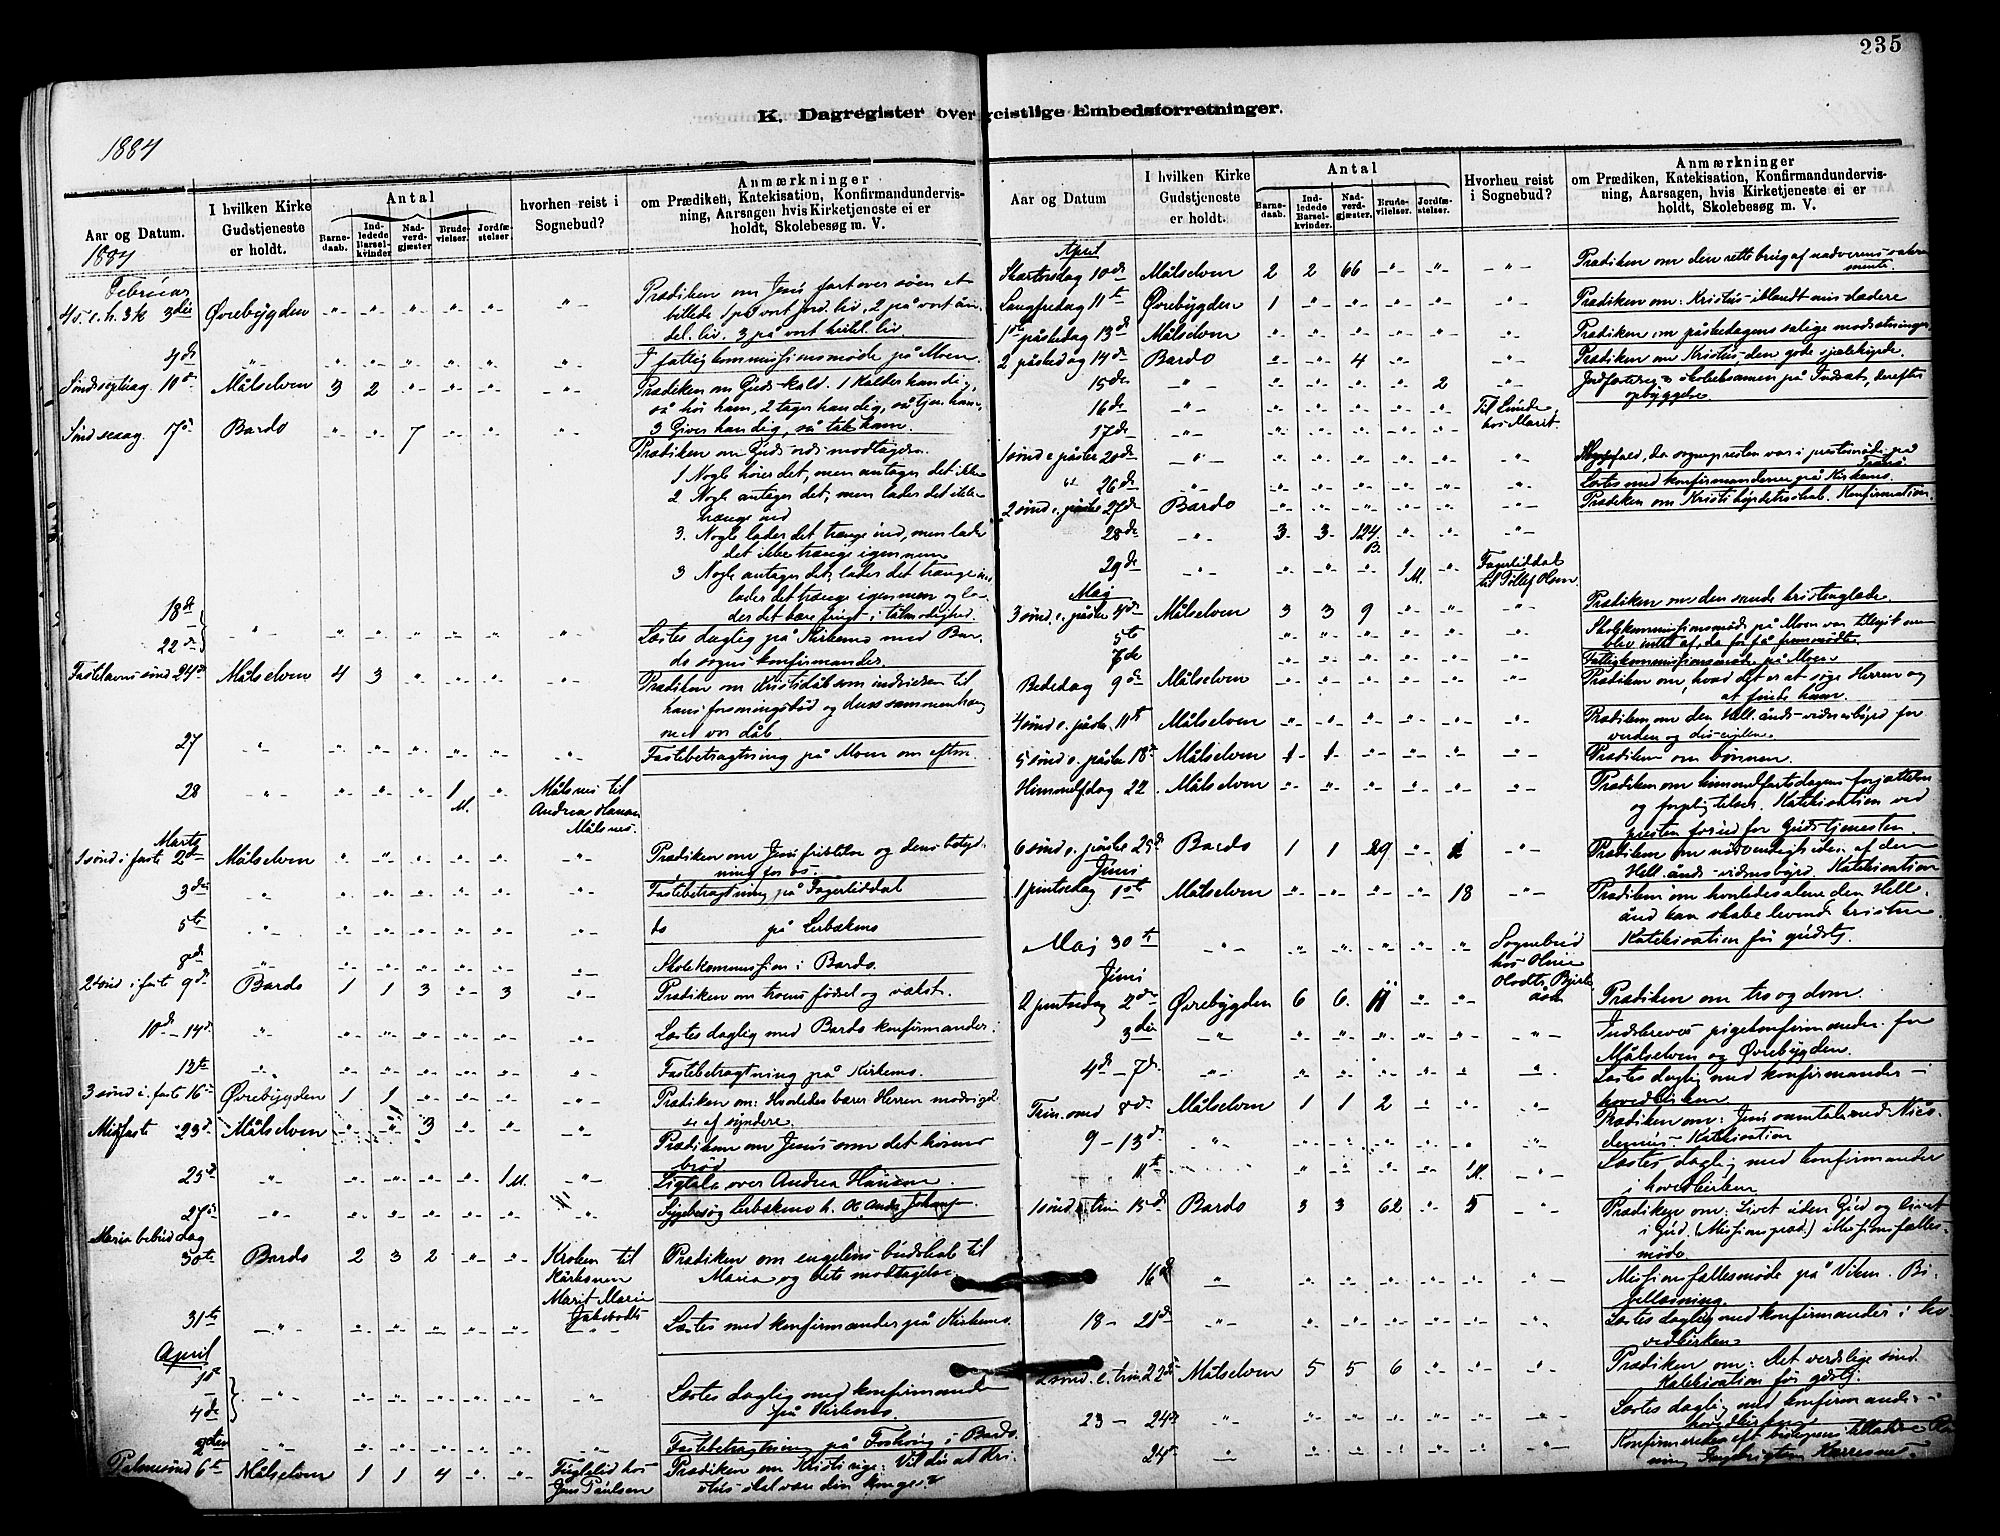 235
K. Dagregister over geistlige Embedsforretninger.
1884
Aar og Datum.
1884
I hvilken Kirke Gudstjeneste er holdt.
Antal
Barnedaab.
Indledede Barselkvinder
Nadverdgjæster
Brudevielser.
Jordfæstelser.
hvorhen reist i Sognebud?
Anmærkninger
om Prædiken, Katekisation, Konfirmandundervisning, Aarsagen hvis Kirketjeneste ei er holdt, Skolebesøg m. V.
Februar
4 s. e. h. 3 k 3die Øvrebygden -"- -"- -"- -"- -"- -"- Prædiken om Jesu fart over søen et
billede 1 på vort jord. liv, 2 på vort ån-
del. liv. 3 på vort kristel. liv
4de " -"- -"- -"- -"- -"- -"- I fattigkommissionsmøde på Moen.
Sønd septuag. 10de Målselven 3 2 -"- -"- -"- -"- Prædiken om Guds kald. 1 Kalder han dig,
så hør ham, 2 tager han dig, så tjen ham,
3 Giver han dig, så tak ham.
Sønd sexag. 17de Bardo -"- -"- 7 -"- -"- -"- Prædiken om Guds ords modtagelse.
1 Nogle hører det, men antager det ikke
2 Nogle antager det, men lader det ikke
trænge ind
3. Nogle lader det trænge ind, men lader
det ikke trænge igennem
3 Nogle antager det, lader det trænge ind,
lader det trænge igennem og la-
der det bære frugt i tålmodighed.
18de
22de -"- -"- -"- -"- -"- -"- -"- Læstes daglig på Kirkemo med Bar-
do sogns konfirmander.
Fastelavns sønd 24de Målselven 4 3 -"- -"- -"- -"- Prædiken om Kristi dåb som indvielsen til
hans forsoningsdød og dens sammenhæng
med vor dåb
27 -"- -"- -"- -"- -"- -"- -"- Fastebetragtning på Moen om eftm.
28 -"- -"- -"- -"- 1 M. -"- Målsnes til
Andrea Hansen
Målsnes.
Marts
1 sønd i faste 2den Målselven -"- -"- -"- -"- -"- -"- Prædiken om Jesu fristelse og dens betyd-
ning for os.
3die -"- -"- -"- -"- -"- -"- -"- Fastebetragtning på Fagerliddal
5te -"- -"- -"- -"- -"- -"- -"- do på Lerbækmo
8de -"- -"- -"- -"- -"- -"- -"- Skolekommission i Bardo.
2 sønd i fast 9de Bardo 1 1 3 -"- 3 -"- Prædiken om troens fødsel og vækst.
10de – 14de -"- -"- -"- -"- -"- -"- -"- Læstes daglig med Bardo konfirmander.
12te -"- -"- -"- -"- -"- -"- -"- Fastebetragtning på Kirkemo.
3 sønd i faste 16de Øvrebygden 1 1 -"- -"- -"- -"- Prædiken om: Hvorledes bærer Herren modsigel-
se af syndere.
Midfaste 23de Målselven -"- -"- 3 -"- -"- -"- Prædiken om Jesus som det himmel
brød
25de -"- -"- -"- -"- -"- 1 M. -"- Ligtale over Andrea Hansen
27de -"- -"- -"- -"- -"- -"- -"- Sygebesøg Lerbækmo h.
Maria bebud dag
30te Bardo 2 3 2 -"- -"- Kroken til
Marit Marie
Jakobsdtr
Prædiken om engelens budskab til
Maria og dets modtagelse.
31te -"- -"- -"- -"- -"- -"- -"- Læstes med konfirmander på Kirkemo.
April
1ste
–
4de -"- -"- -"- -"- -"- -"- -"- Læstes daglig med konfirmander
på Kirkemo.
2den -"- -"- -"- -"- -"- -"- -"- Fastebetragtning på i Bardo.
Palmesønd 6te Målselven 1 1 4 -"- -"- Fuglelid hos
Jens Paulsen
Prædiken om Kristi rige: Vil du at Kri-
stus skal være din konge?
Aar og Datum
I hvilken Kirke Gudstjeneste er holdt.
Antal
Barnedaab.
Indledede Barselkvinder.
Nadverdgjæster.
Brudevielser.
Jordfæstelser.
Hvorheu reist i Sognebud?
Anmærkninger
om Prædiken, Katekisation, Konfirmandundervisning, Aarsagen, hvis Kirketjeneste ei er holdt, Skolebesøg m. V.
April
Skærtorsdag 10de Målselven 2 2 66 -"- -"- -"- Prædiken om den rette brug af nadverens sakra-
mente.
Langfredag 11te Øvrebygden 1 -"- -"- -"- -"- -"- Prædiken om: Kristus iblandt misdædere
1ste påskedag 13de Målselven -"- -"- -"- -"- -"- -"- Prædiken om påskedagens salige modsætninger.
2 påskedag 14de Bardo -"- -"- 4 -"- -"- -"- Prædiken om Kristus den gode sjælehyrde.
15de -"- -"- -"- -"- -"- 2 -"- Jordfæstelse, skoleeksamen på Indset, derefter
opbyggelse
16de -"- -"- -"- -"- -"- -"- Til Lunde
hos Marit.
17de -"- -"- -"- -"- -"- -"-
1 sønd e påske 20de -"- -"- -"- -"- -"- -"- -"- Messefald, da sognepresten var i prestemøde på
Tromsø
" 26de -"- -"- -"- -"- -"- -"- Læstes med konfirmanderne på Kirkemo.
2 sønd e. påske 27de Bardo -"- -"- -"- -"- -"- -"- Prædiken om Kristi hyrdetroskab. Konfirmation.
28de -"- 3 3 124 B. -"- -"- -"-
29de -"- -"- -"- -"- 1 M. -"- Fagerliddal
til Tollef Olsen
Maj
3 sønd. e. påske 4de Målselven 3 3 9 -"- -"- -"- Prædiken om den sande kristenglæde.
5te -"- -"- -"- -"- -"- -"- Skolekommissionsmøde på Moen var tilsigt men
blev intet af, da for få fremmødte.
7de -"- -"- -"- -"- -"- -"- Fattigkommissionsmøde på Moen
Bededag 9de Målselven -"- -"- -"- -"- -"- -"- Prædiken om, hvad det er at søge Herren og
at finde ham.
4 sønd e. påske. 11te Målselven -"- -"- -"- -"- -"- -"- Prædiken om den Hell. ånds vidnesbyrd for
verden og disciplene.
5 sønd e. påske 18de Målselven 1 1 -"- -"- -"- -"- Prædiken om bønnen.
Himmelfdag 22. Målselven -"- -"- -"- -"- -"- -"- Prædiken om himmelfartsdagens forjættelse
og forpligtelse. Katekisation ved
presten forud for Gudstjenesten.
6 sønd e. påske 25de Bardo 1 1 29 -"- 1 -"- Prædiken om nødvendigheden af den
Hell. ånds vidnesbyrd. Katekisation
Juni
1 pintsedag 1ste Målselven -"- -"- -"- -"- 18 -"- Prædiken om hvorledes alene den Hell.
ånd kan skabe levende kristne.
Katekisation før gudstj.
Maj 30te -"- -"- -"- -"- -"- -"- Sognebud
hos
Juni
2 pintsedag 2den Øvrebygden 6 6 11 -"- -"- Prædiken om tro og dom.
3die -"- -"- -"- -"- -"- -"- -"- Indskreves pigekonfirmander for
Målselven og Øvrebygden.
4de – 7de -"- -"- -"- -"- -"- -"- -"- Læstes daglig med konfirmander i
hovedkirken
Trin. sønd 8de Målselven 1 1 2 -"- -"- -"- Prædiken om: Jesu samtale med Nico-
demus. Katekisation
9 – 13de -"- -"- -"- -"- -"- -"- -"- Læstes daglig med konfirmander
i hovedkirken
11te -"- -"- -"- -"- 1 M. -"-
1 sønd e trin 15de Bardo 3 3 62 -"- 5 -"- Prædiken om: Livet uden Gud og livet
i Gud. (Missionspræd.) i Missionsfælles-
møde
16de -"- -"- -"- -"- -"- -"- -"- Missionsfællesmøde på Viken. Bi-
bellæsning.
18 – 21de -"- -"- -"- -"- -"- -"- -"- Læstes daglig med konfirmander i ho-
vedkirken
2 sønd. e. trin 22de Målselven 5 5 6 -"- -"- -"- Prædiken om: Det verdslige sind.
Katekisation før gdstj.
23 – 24de -"- -"- -"- -"- -"- -"- -"- Læstes daglig med konfirmander i
hovedkirken
24de -"- -"- -"- -"- -"- -"- -"- Konfirmeredes eft bispens tilladelse
Ingebrigtsen